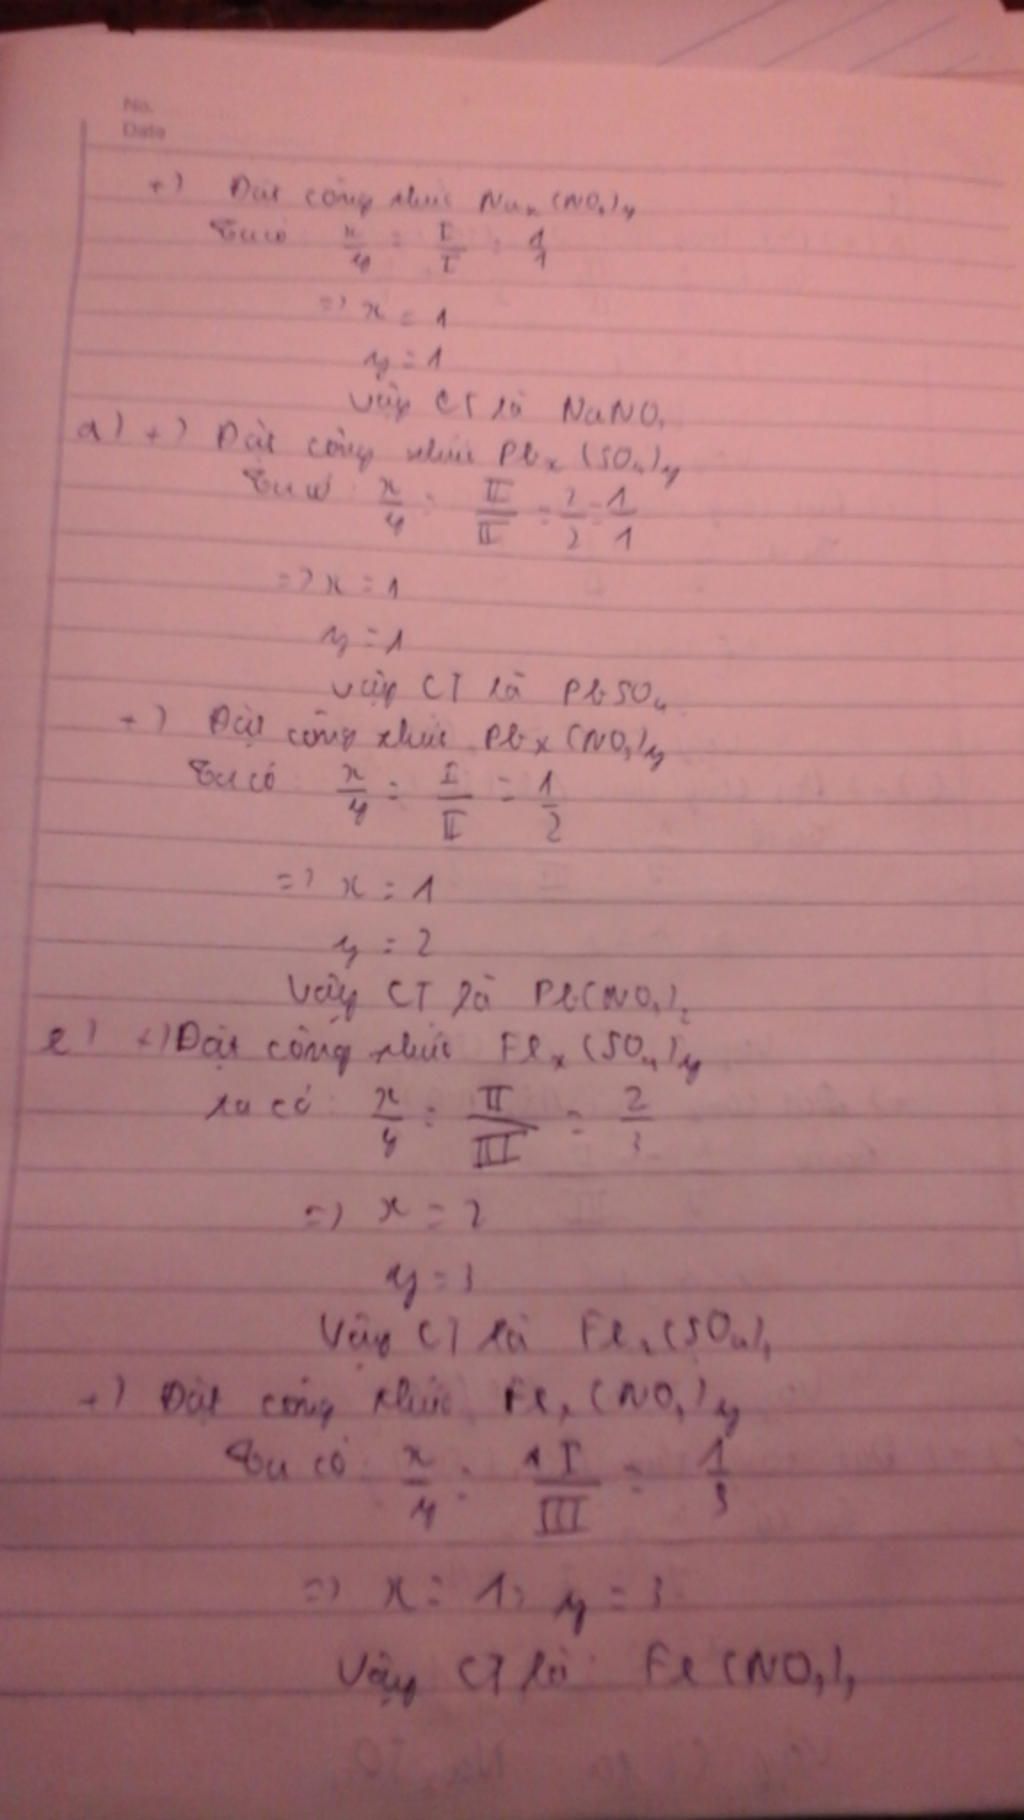 No.
Date
+) Đặt công thức Nax(NO3)y
Ta có x/y = I/I = 1/1
=> x = 1
y = 1
Vậy CT là NaNO3
d) +) Đặt công thức Pbx(SO4)y
Ta có: x/y = II/II = 2/2 = 1/1
=> x = 1
y = 1
Vậy CT là PbSO4
+) Đặt công thức Pbx(NO3)y
Ta có: x/y = I/II = 1/2
=> x = 1
y = 2
Vậy CT là Pb(NO3)2
e) +) Đặt công thức Fex(SO4)y
Ta có: x/y = II/III = 2/3
=> x = 2
y = 3
Vậy CT là Fe2(SO4)3
+) Đặt công thức Fex(NO3)y
Ta có: x/y = I/III = 1/3
=> x = 1, y = 3
Vậy CT là: Fe(NO3)3